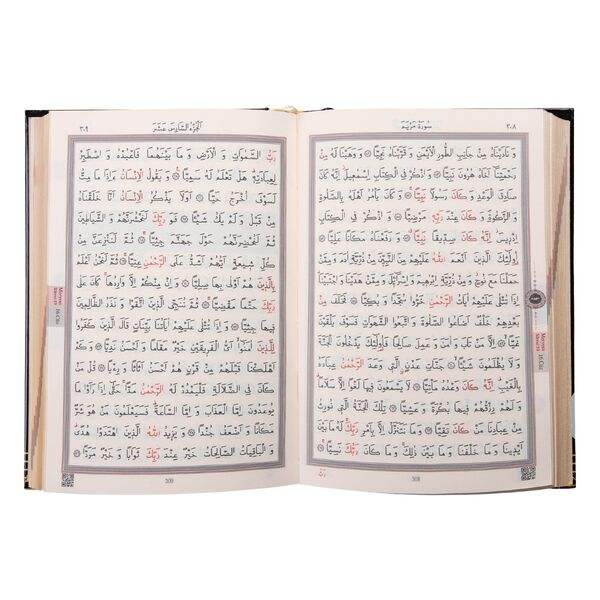 ٣٠٨ سورة مريم
وَ نَادَيْنَاهُ مِنْ جَانِبِ الطُّورِ الْاَيْمَنِ وَ قَرَّبْنَاهُ نَجِيًّا ۝ وَ وَهَبْنَا لَهُ مِنْ
رَحْمَتِنَا اَخَاهُ هٰرُونَ نَبِيًّا ۝ وَ اذْكُرْ فِي الْكِتَابِ اِسْمٰعِيلَ اِنَّهُ كَانَ
صَادِقَ الْوَعْدِ وَ كَانَ رَسُولًا نَبِيًّا ۝ وَ كَانَ يَأْمُرُ اَهْلَهُ بِالصَّلٰوةِ
وَ الزَّكٰوةِ وَ كَانَ عِنْدَ رَبِّهِ مَرْضِيًّا ۝ وَ اذْكُرْ فِي الْكِتَابِ
اِدْرِيسَ اِنَّهُ كَانَ صِدِّيقًا نَبِيًّا ۝ وَ رَفَعْنَاهُ مَكَانًا عَلِيًّا ۝
اُولٰئِكَ الَّذِينَ اَنْعَمَ اللّٰهُ عَلَيْهِمْ مِنَ النَّبِيِّنَ مِنْ ذُرِّيَّةِ اٰدَمَ وَ مِمَّنْ
حَمَلْنَا مَعَ نُوحٍ وَ مِنْ ذُرِّيَّةِ اِبْرٰهِيمَ وَ اِسْرَائِيلَ وَ مِمَّنْ هَدَيْنَا وَ اجْتَبَيْنَا
اِذَا تُتْلٰى عَلَيْهِمْ اٰيَاتُ الرَّحْمٰنِ خَرُّوا سُجَّدًا وَ بُكِيًّا ۝ فَخَلَفَ مِنْ
بَعْدِهِمْ خَلْفٌ اَضَاعُوا الصَّلٰوةَ وَ اتَّبَعُوا الشَّهَوَاتِ فَسَوْفَ يَلْقَوْنَ
غَيًّا ۝ اِلَّا مَنْ تَابَ وَ اٰمَنَ وَ عَمِلَ صَالِحًا فَاُولٰئِكَ يَدْخُلُونَ الْجَنَّةَ
وَ لَا يُظْلَمُونَ شَيْئًا ۝ جَنَّاتِ عَدْنٍ الَّتِي وَعَدَ الرَّحْمٰنُ عِبَادَهُ
بِالْغَيْبِ اِنَّهُ كَانَ وَعْدُهُ مَأْتِيًّا ۝ لَا يَسْمَعُونَ فِيهَا لَغْوًا اِلَّا سَلَامًا
وَ لَهُمْ رِزْقُهُمْ فِيهَا بُكْرَةً وَ عَشِيًّا ۝ تِلْكَ الْجَنَّةُ الَّتِي نُورِثُ
مِنْ عِبَادِنَا مَنْ كَانَ تَقِيًّا ۝ وَ مَا نَتَنَزَّلُ اِلَّا بِاَمْرِ رَبِّكَ لَهُ مَا بَيْنَ
اَيْدِينَا وَ مَا خَلْفَنَا وَ مَا بَيْنَ ذٰلِكَ وَ مَا كَانَ رَبُّكَ نَسِيًّا ۝
رَبُّ
308
Meryem
Sûresi 19
16. Cüz
٣٠٩ الجزء السادس عشر
رَبُّ السَّمٰوَاتِ وَ الْاَرْضِ وَ مَا بَيْنَهُمَا فَاعْبُدْهُ وَ اصْطَبِرْ
لِعِبَادَتِهِ هَلْ تَعْلَمُ لَهُ سَمِيًّا ۝ وَ يَقُولُ الْاِنْسَانُ ءَاِذَا مَا مِتُّ
لَسَوْفَ اُخْرَجُ حَيًّا ۝ اَوَلَا يَذْكُرُ الْاِنْسَانُ اَنَّا خَلَقْنَاهُ
مِنْ قَبْلُ وَ لَمْ يَكُ شَيْئًا ۝ فَوَ رَبِّكَ لَنَحْشُرَنَّهُمْ وَ الشَّيَاطِينَ
ثُمَّ لَنُحْضِرَنَّهُمْ حَوْلَ جَهَنَّمَ جِثِيًّا ۝ ثُمَّ لَنَنْزِعَنَّ مِنْ
كُلِّ شِيعَةٍ اَيُّهُمْ اَشَدُّ عَلَى الرَّحْمٰنِ عِتِيًّا ۝ ثُمَّ لَنَحْنُ اَعْلَمُ
بِالَّذِينَ هُمْ اَوْلٰى بِهَا صِلِيًّا ۝ وَ اِنْ مِنْكُمْ اِلَّا وَارِدُهَا كَانَ عَلٰى
رَبِّكَ حَتْمًا مَقْضِيًّا ۝ ثُمَّ نُنَجِّي الَّذِينَ اتَّقَوْا وَ نَذَرُ الظَّالِمِينَ
فِيهَا جِثِيًّا ۝ وَ اِذَا تُتْلٰى عَلَيْهِمْ اٰيَاتُنَا بَيِّنَاتٍ قَالَ الَّذِينَ كَفَرُوا
لِلَّذِينَ اٰمَنُوا اَيُّ الْفَرِيقَيْنِ خَيْرٌ مَقَامًا وَ اَحْسَنُ نَدِيًّا ۝ وَ كَمْ
اَهْلَكْنَا قَبْلَهُمْ مِنْ قَرْنٍ هُمْ اَحْسَنُ اَثَاثًا وَ رِءْيًا ۝ قُلْ مَنْ
كَانَ فِي الضَّلَالَةِ فَلْيَمْدُدْ لَهُ الرَّحْمٰنُ مَدًّا حَتّٰى اِذَا رَاَوْا مَا
يُوعَدُونَ اِمَّا الْعَذَابَ وَ اِمَّا السَّاعَةَ فَسَيَعْلَمُونَ مَنْ هُوَ شَرٌّ
مَكَانًا وَ اَضْعَفُ جُنْدًا ۝ وَ يَزِيدُ اللّٰهُ الَّذِينَ اهْتَدَوْا هُدًى
وَ الْبَاقِيَاتُ الصَّالِحَاتُ خَيْرٌ عِنْدَ رَبِّكَ ثَوَابًا وَ خَيْرٌ مَرَدًّا ۝
309
Meryem
Sûresi 19
16. Cüz